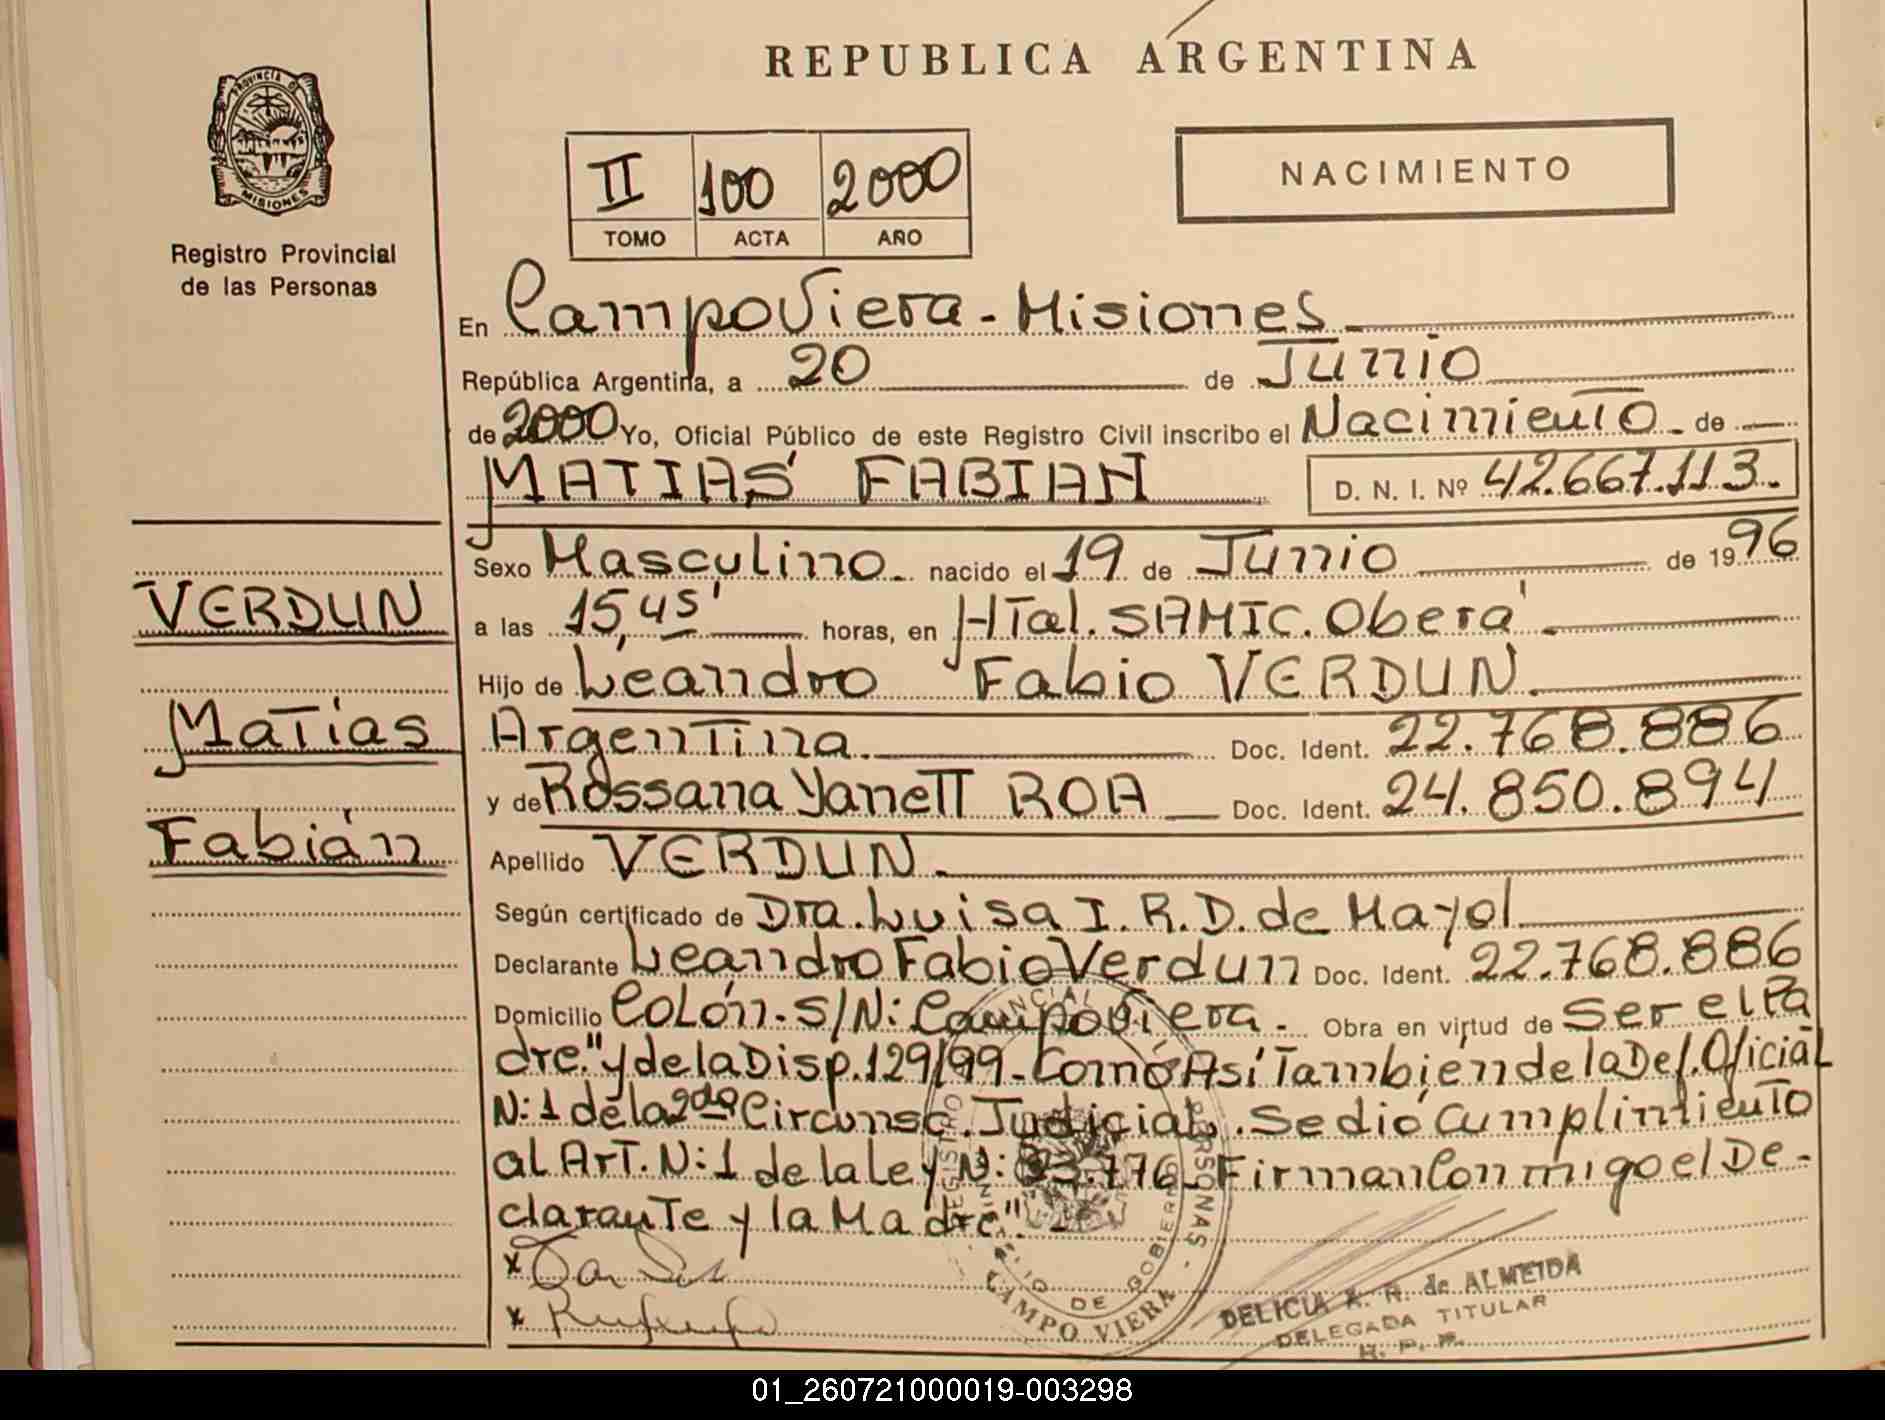 REPUBLICA ARGENTINA
PROVINCIA DE
MISIONES
Registro Provincial
de las Personas
II 100 2000
TOMO ACTA AÑO
NACIMIENTO
En CampoViera - Misiones
República Argentina, a 20 de Junio
de 2000 Yo, Oficial Público de este Registro Civil inscribo el Nacimiento - de
MATIAS FABIAN D. N. I. Nº 42.667.113.
Sexo Masculino nacido el 19 de Junio de 1996
a las 15,45' horas, en HTal. SAMIC. Oberá
Hijo de Leandro Fabio VERDUN.
Argentina. Doc. Ident. 22.768.886
y de Rossana Yanett ROA Doc. Ident. 24.850.894
Apellido VERDUN.
Según certificado de Dra. Luisa I. R. D. de Mayol
Declarante Leandro Fabio Verdun Doc. Ident. 22.768.886
Domicilio Colón. S/N: CampoViera. Obra en virtud de Ser el Pa
dre." y de la Disp. 129/99 - Como Así También de la Def. Oficial
N: 1 de la 2da Circunsc. Judicial. Se dió Cumplimiento
al Art. N: 1 de la Ley N: 23.776 - Firman Conmigo el De-
clarante y la Madre".
VERDUN
Matías
Fabián
CAMPO VIERA
DELICIA A. R. de ALMEIDA
DELEGADA TITULAR
R. P. P.
01_260721000019-003298